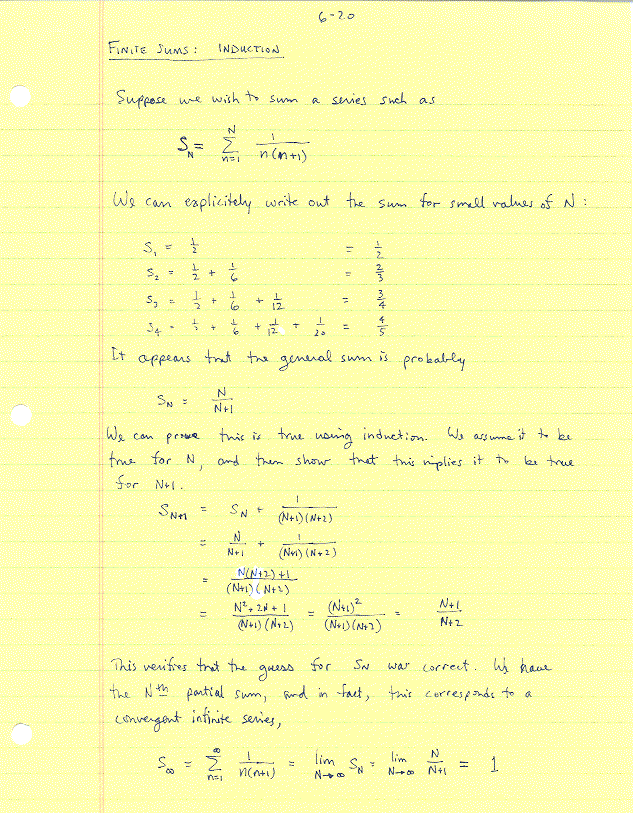 6-20
FINITE SUMS: INDUCTION
Suppose we wish to sum a series such as
S_N = \sum_{n=1}^{N} \frac{1}{n(n+1)}
We can explicitely write out the sum for small values of N:
S_1 = \frac{1}{2} = \frac{1}{2}
S_2 = \frac{1}{2} + \frac{1}{6} = \frac{2}{3}
S_3 = \frac{1}{2} + \frac{1}{6} + \frac{1}{12} = \frac{3}{4}
S_4 = \frac{1}{2} + \frac{1}{6} + \frac{1}{12} + \frac{1}{20} = \frac{4}{5}
It appears that the general sum is probably
S_N = \frac{N}{N+1}
We can prove this is true using induction. We assume it to be
true for N, and then show that this implies it to be true
for N+1.
S_{N+1} = S_N + \frac{1}{(N+1)(N+2)}
= \frac{N}{N+1} + \frac{1}{(N+1)(N+2)}
= \frac{N(N+2)+1}{(N+1)(N+2)}
= \frac{N^2+2N+1}{(N+1)(N+2)} = \frac{(N+1)^2}{(N+1)(N+2)} = \frac{N+1}{N+2}
This verifies that the guess for S_N was correct. We have
the N^{th} partial sum, and in fact, this corresponds to a
convergent infinite series,
S_\infty = \sum_{n=1}^{\infty} \frac{1}{n(n+1)} = \lim_{N→\infty} S_N = \lim_{N→\infty} \frac{N}{N+1} = 1